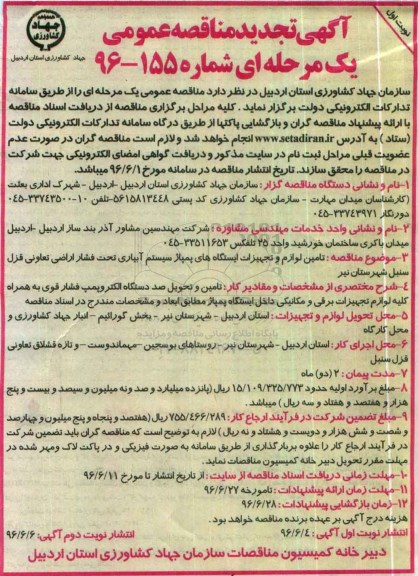 نوبت اول
آگهی تجدید مناقصه عمومی
یک مرحله ای شماره ۱۵۵-۹۶
جهاد کشاورزی
جهاد کشاورزی استان اردبیل
سازمان جهاد کشاورزی استان اردبیل در نظر دارد مناقصه عمومی یک مرحله ای را از طریق سامانه
تدارکات الکترونیکی دولت برگزار نماید . کلیه مراحل برگزاری مناقصه از دریافت اسناد مناقصه
با ارائه پیشنهاد مناقصه گران و بازگشایی پاکتها از طریق درگاه سامانه تدارکات الکترونیکی دولت
(ستاد ) به آدرس www.setadiran.ir انجام خواهد شد و لازم است مناقصه گران در صورت عدم
عضویت قبلی مراحل ثبت نام در سایت مذکور و دریافت گواهی امضای الکترونیکی جهت شرکت
در مناقصه را محقق سازند. تاریخ انتشار مناقصه در سامانه مورخ ۹۶/۶/۱ میباشد.
۱-نام و نشانی دستگاه مناقصه گزار : سازمان جهاد کشاورزی استان اردبیل -اردبیل - شهرک اداری بعثت
(کارشناسان میدان مهارت - سازمان جهاد کشاورزی کد پستی ۵۶۱۵۸۱۳۴۴۸-تلفن ۱۰-۳۳۷۴۳۵۰۰-۰۴۵
دورنگار ۳۳۷۴۳۹۷۱-۰۴۵
۲-نام و نشانی واحد خدمات مهندسی مشاوره : شرکت مهندسین مشاور آذر بند ساز اردبیل -اردبیل
میدان باکری ساختمان خورشید واحد ۲۵ تلفکس ۳۳۵۱۱۶۵۳-۰۴۵
۳-موضوع مناقصه : تامین لوازم و تجهیزات ایستگاه های پمپاژ سیستم آبیاری تحت فشار اراضی تعاونی قزل
سنبل شهرستان نیر
۴-شرح مختصری از مشخصات و مقادیر کار : تامین و تحویل صد دستگاه الکتروپمپ فشار قوی به همراه
کلیه لوازم تجهیزات برقی و مکانیکی داخل ایستگاه پمپاژ مطابق ابعاد و مشخصات مندرج در اسناد مناقصه
۵-محل تحویل لوازم و تجهیزات : استان اردبیل - شهرستان نیر - بخش گورائیم - انبار جهاد کشاورزی و
محل کارگاه
۶-محل اجرای کار : استان اردبیل - شهرستان نیر - روستاهای بوسجین -مهماندوست - و تازه قشلاق تعاونی
قزل سنبل
۷-مدت پیمان : ۲ (دو) ماه
۸-مبلغ برآورد اولیه حدود ۱۵/۱۰۹/۳۲۵/۷۷۳ ریال (پانزده میلیارد و صد و نه میلیون و سیصد و بیست و پنج
هزار و هفتصد و هفتاد و سه ریال ) میباشد.
۹-مبلغ تضمین شرکت در فرآیند ارجاع کار : ۷۵۵/۴۶۶/۲۸۹ ریال (هفتصد و پنجاه و پنج میلیون و چهارصد
و شصت و شش هزار و دویست و هشتاد و نه ریال ) لازم به توضیح است که مناقصه گران باید تضمین شرکت
در فرآیند ارجاع کار را علاوه بر بارگذاری از طریق سامانه به صورت فیزیکی و در پاکت لاک ومهر شده در
مهلت مقرر تحویل دبیر خانه کمیسیون مناقصات نماید.
۱۰-مهلت زمانی دریافت اسناد مناقصه از سایت : از تاریخ انتشار تا مورخ ۹۶/۶/۱۱
۱۱-مهلت زمان ارائه پیشنهادات : تامورخه ۹۶/۶/۲۷
۱۲-زمان بازگشایی پیشنهادات : ۹۶/۶/۲۸
هزینه درج آگهی بر عهده برنده مناقصه خواهد بود.
انتشار نوبت اول آگهی : ۹۶/۶/۴ انتشار نوبت دوم آگهی : ۹۶/۶/۶
دبیر خانه کمیسیون مناقصات سازمان جهاد کشاورزی استان اردبیل